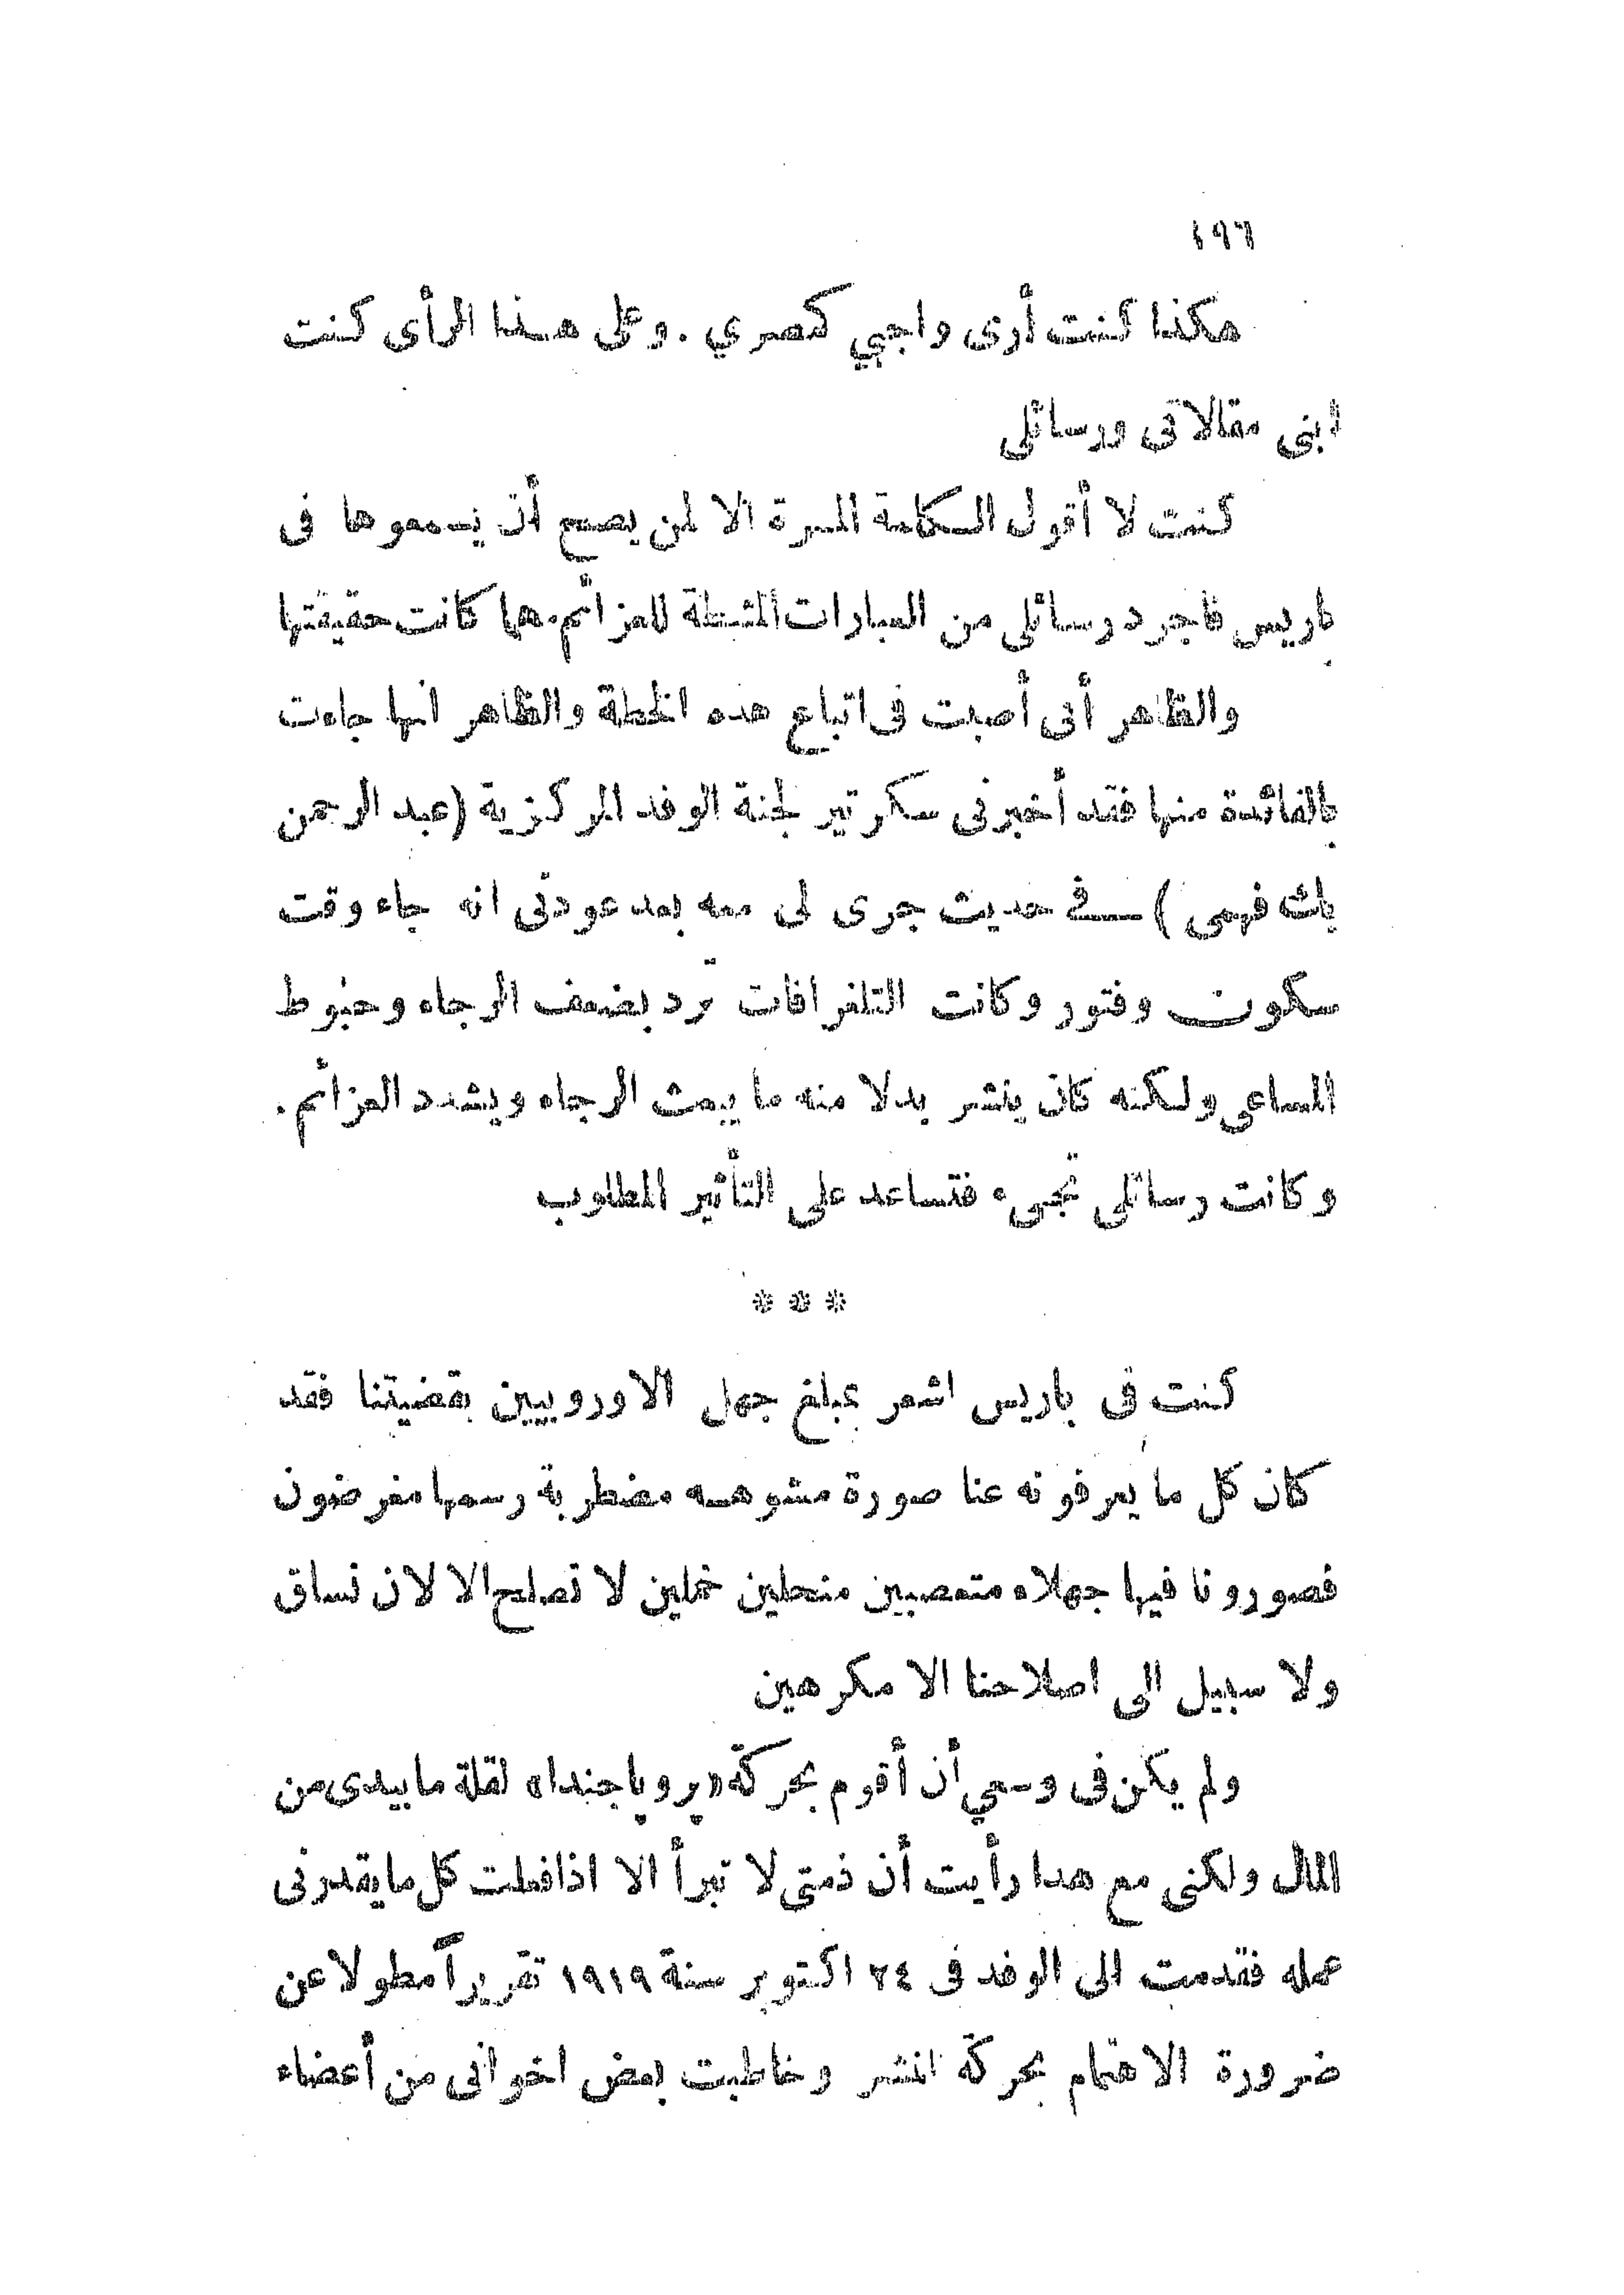 ١٩٦
هكذا كنت أرى واجبي كمصري . وعلى هذا الرأى كنت
ابنى مقالاتى ورسائلى
كنت لا أقول الكلمة المرة الا لمن يصح أن يسمعوها فى
باريس فاجرد رسائلى من العبارات المثبطة للعزائم مهما كانت حقيقتها
والظاهر أنى أصبت فى اتباع هذه الخطة والظاهر انها جاءت
بالفائدة منها فقد أخبرنى سكرتير لجنة الوفد المركزية (عبد الرحمن
بك فهمى ) — في حديث جرى لى معه بعد عودتى انه جاء وقت
سكون وفتور وكانت التلغرافات ترد بضعف الرجاء وحبوط
المساعى ولكنه كان ينشر بدلا منه ما يبعث الرجاء ويشدد العزائم .
وكانت رسائلى تجىء فتساعد على التأثير المطلوب
* * *
كنت فى باريس اشعر بمبلغ جهل الاوروبيين بقضيتنا فقد
كان كل ما يعرفونه عنا صورة مشوهه مضطربة رسمها مغرضون
فصورونا فيها جهلاء متعصبين منحلين خملين لا نصلح الا لان نساق
ولا سبيل الى اصلاحنا الا مكرهين
ولم يكن فى وسعي أن أقوم بحركة «پروپاجندا» لقلة ما بيدى من
المال ولكنى مع هدا رأيت أن ذمتى لا تبرأ الا اذا فعلت كل ما يقدرنى
عمله فقدمت الى الوفد فى ٢٤ اكتوبر سنة ١٩١٩ تقريراً مطولا عن
ضرورة الاهتمام بحركة النشر وخاطبت بعض اخوانى من أعضاء